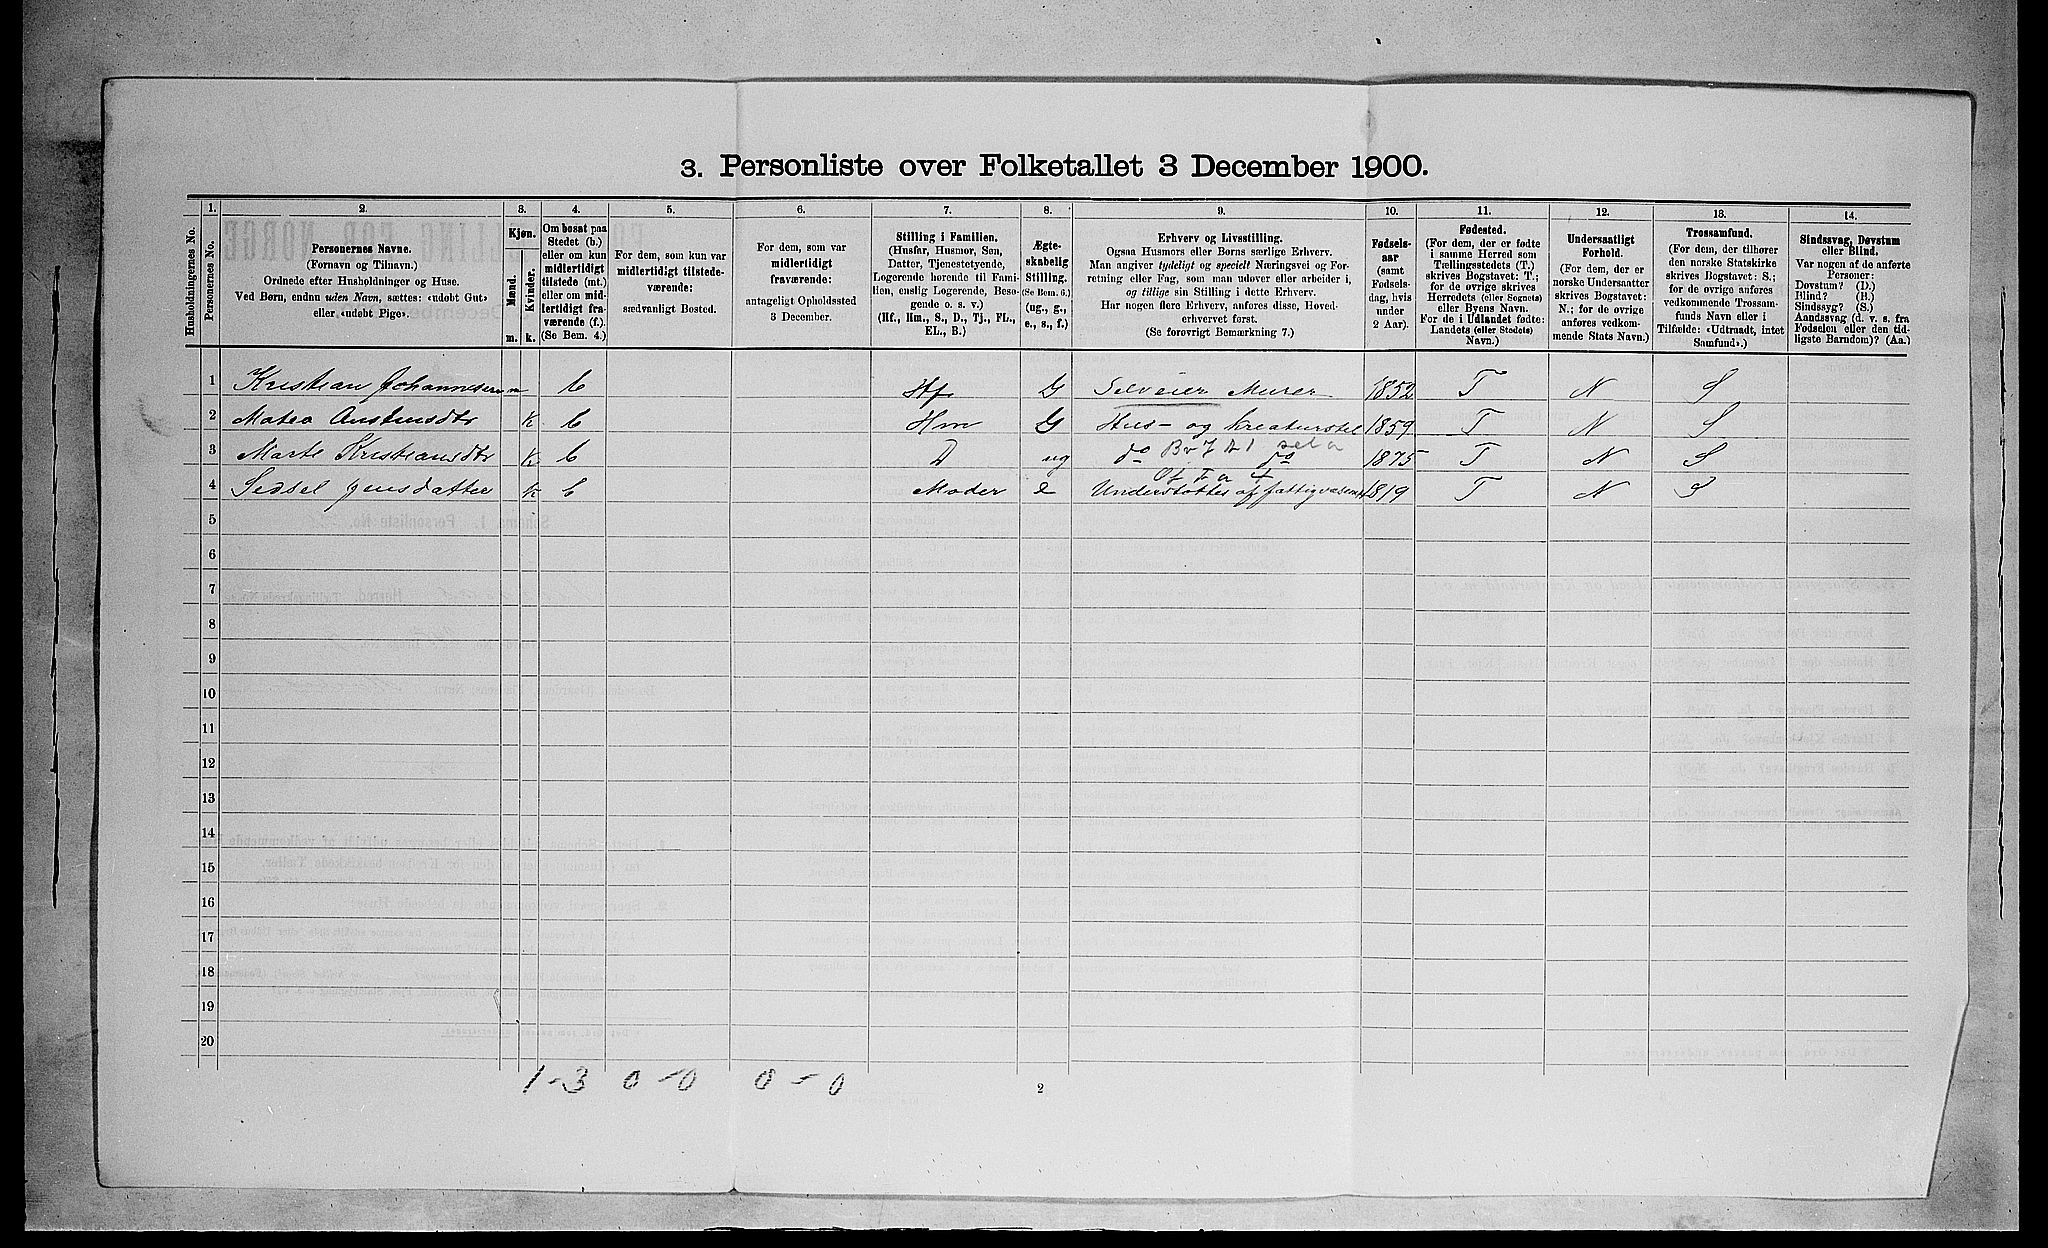 3. Personliste over Folketallet 3 December 1900.
1. 2. 3. 4. 5. 6. 7. 8. 9. 10. 11. 12. 13. 14.
Husholdningernes No.
Personernes No.
Personernes Navne.
(Fornavn og Tilnavn.)
Ordnede efter Husholdninger og Huse.
Ved Børn, endnu uden Navn, sættes: «udøbt Gut»
eller «udøbt Pige».
Kjøn.
Mænd.
Kvinder.
m. k.
Om bosat paa
Stedet (b.)
eller om kun
midlertidigt
tilstede (mt.)
eller om mid-
lertidigt fra-
værende (f.)
(Se Bem. 4.)
For dem, som kun var
midlertidigt tilstede-
værende:
sædvanligt Bosted.
For dem, som var
midlertidigt
fraværende:
antageligt Opholdssted
3 December.
Stilling i Familien.
(Husfar, Husmor, Søn,
Datter, Tjenestetyende,
Logerende hørende til Fami-
lien, enslig Logerende, Besø-
gende o. s. v.)
(Hf., Hm., S., D., Tj., FL.,
EL., B.)
Ægte-
skabelig
Stilling.
(Se Bem. 6.)
(ug., g.,
e., s., f.)
Erhverv og Livsstilling.
Ogsaa Husmors eller Børns særlige Erhverv.
Man angiver tydeligt og specielt Næringsvei og For-
retning eller Fag, som man udøver eller arbeider i,
og tillige sin Stilling i dette Erhverv.
Har nogen flere Erhverv, anføres disse, Hoved-
erhvervet først.
(Se forøvrigt Bemærkning 7.)
Fødsels-
aar
(samt
Fødsels-
dag, hvis
under
2 Aar).
Fødested.
(For dem, der er fødte
i samme Herred som
Tællingsstedets (T.)
skrives Bogstavet: T.;
for de øvrige skrives
Herredets (eller Sognets)
eller Byens Navn.
For de i Udlandet fødte:
Landets (eller Stedets)
Navn.)
Undersaatligt
Forhold.
(For dem, der er
norske Undersaatter
skrives Bogstavet:
N.; for de øvrige
anføres vedkom-
mende Stats Navn.)
Trossamfund.
(For dem, der tilhører
den norske Statskirke
skrives Bogstavet: S.;
for de øvrige anføres
vedkommende Trossam-
funds Navn eller i
Tilfælde: «Udtraadt, intet
Samfund».)
Sindssvag, Døvstum
eller Blind.
Var nogen af de anførte
Personer:
Døvstum? (D.)
Blind? (B.)
Sindssyg? (S.)
Aandssvag (d. v. s. fra
Fødselen eller den tid-
ligste Barndom)? (Aa.)
1 Kristian Johannesen m b Hf G Selveier Murer 1852 T N S
2 Matea Anstensdtr K b Hm G Hus- og kreaturstel 1859 T N S
3 Marte Kristiansdtr K b D ug do do 1875 T N S
4 Sedsel Jensdatter K b Moder e Understøttes af fattigvæsenet 1819 T N S
5
6
7
8
9
10
11
12
13
14
15
16
17
18
19
20
1-3 0-0 0-0
2